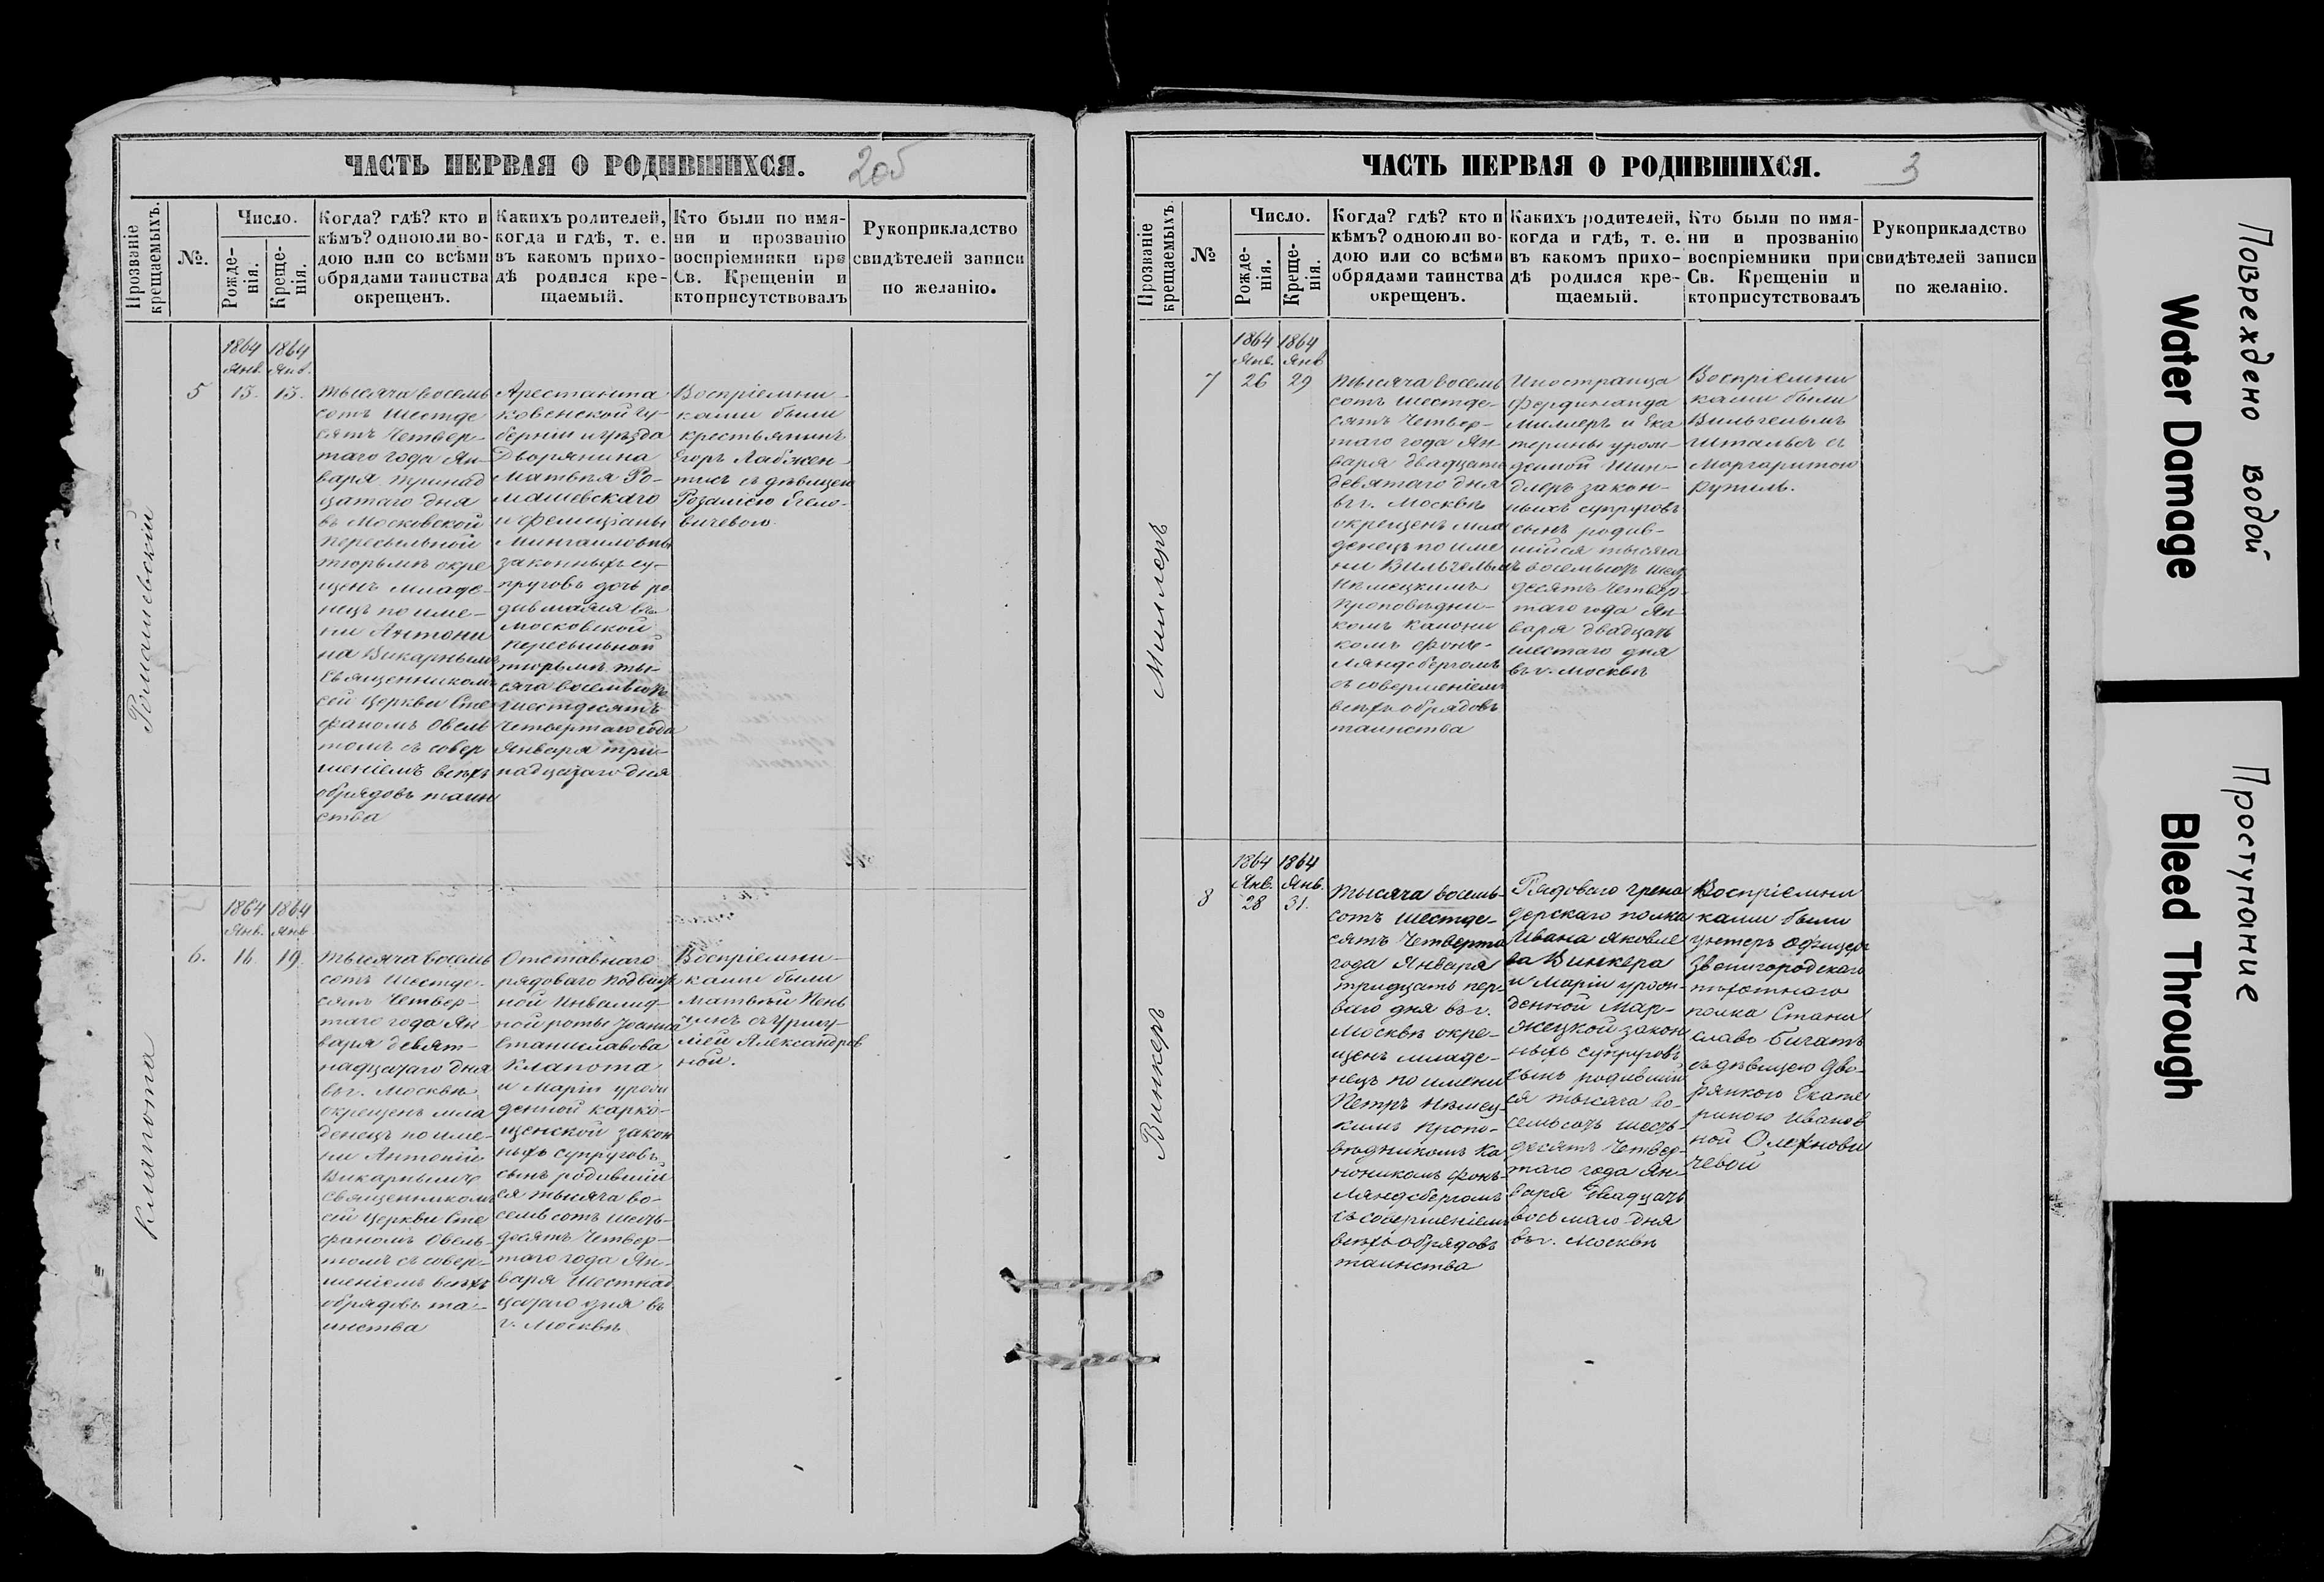 ЧАСТЬ ПЕРВАЯ О РОДИВШИХСЯ.
2об
Прозваніе крещаемыхъ.
№.
Число.
Рожде-
нія.
Креще-
нія.
Когда? гдѣ? кто и
кѣмъ? одноюли во-
дою или со всѣми
обрядами таинства
окрещенъ.
Какихъ родителей,
когда и гдѣ, т. е.
въ какомъ прихо-
дѣ родился кре-
щаемый.
Кто были по имя-
ни и прозванію
воспріемники при
Св. Крещеніи и
ктоприсутствовалъ
Рукоприкладство
свидѣтелей записи
по желанію.
Ромашевскій
5
1864
Янв.
13.
1864
Янв.
13.
тысяча восемь
сотъ шестде
сятъ четвер-
таго года Ян-
варя тринад
цатаго дня
въ Московской
пересыльной
тюрьмѣ окре
щенъ младе-
нецъ по име-
ни Антони
на Викарнымъ
Священникомъ
сей церкви Сте
фаномъ Овель
томъ съ совер
шеніемъ всѣхъ
обрядовъ таин
ства
Арестанта
Ковенской гу-
берніи и уѣзда
Дворянина
Матвѣя Ро-
машевскаго
и Фелиціаны
Михаиловны
законныхъ су-
пруговъ дочь ро
дившаяся въ
Московской
пересыльной
тюрьмѣ ты-
сяча восемьсотъ
шестдесятъ
четвертаго года
Января три-
надцатаго дня
Воспріемни-
ками были
крестьянинъ
Егоръ
съ дѣвицею
Розаліею
Клапота
6.
1864
Янв.
16.
1864
Янв
19
тысяча восемь
сотъ шестде-
сятъ четвер-
таго года Ян-
варя девят-
надцатаго дня
въ г. Москвѣ
окрещенъ мла
денецъ по име-
ни Антоній
Викарнымъ
Священникомъ
сей церкви Сте
фаномъ Овель-
томъ съ совер-
шеніемъ всѣхъ
обрядовъ та-
инства
Отставнаго
рядоваго подвиж
ной инвалид-
ной роты Іоанна
Станиславова
Клапота
и Маріи урож
денной Карко-
щенской закон
ныхъ супруговъ
сынъ родившій
ся тысяча во-
семь сотъ шесть-
десятъ четвер-
таго года Ян-
варя шестнад
цатаго дня въ
г. Москвѣ
Воспріемни-
ками были
Матвѣй
Александров
ной.
ЧАСТЬ ПЕРВАЯ О РОДИВШИХСЯ.
3
Прозваніе крещаемыхъ.
№
Число.
Рожде-
нія.
Креще-
нія.
Когда? гдѣ? кто и
кѣмъ? одноюли во-
дою или со всѣми
обрядами таинства
окрещенъ.
Какихъ родителей,
когда и гдѣ, т. е.
въ какомъ прихо-
дѣ родился кре-
щаемый.
Кто были по имя-
ни и прозванію
воспріемники при
Св. Крещеніи и
ктоприсутствовалъ
Рукоприкладство
свидѣтелей записи
по желанію.
Миллеръ
7
1864
Янв.
26
1864
Янв
29
тысяча восемь
сотъ шестде-
сятъ четвер-
таго года Ян-
варя двадцать
девятаго дня
въ г. Москвѣ
окрещенъ мла
денецъ по име
ни Вильгельмъ
Нѣмецкимъ
проповѣдни-
комъ Канони
комъ Фонъ-
Ляндсбергомъ
съ совершеніемъ
всѣхъ обрядовъ
таинства
Иностранца
Фердинанда
Миллеръ и Ека
терины урож-
денной Шин-
длеръ закон-
ныхъ супруговъ
сынъ родив-
шійся тысяча
восемьсотъ шест
десятъ четвер-
таго года Ян-
варя двадцать
шестаго дня
въ г. Москвѣ
Воспріемни
ками были
Вильгельмъ
Штальбе съ
Маргаритою
Винкеръ
8
1864
Янв.
28
1864
Янв.
31.
тысяча восемь-
сотъ шестде-
сятъ четверта
года Января
тридцать пер-
ваго дня въ г.
Москвѣ окре-
щенъ младе-
нецъ по имени
Петръ Нѣмец-
кимъ пропо-
вѣдникомъ Ка
ноникомъ Фонъ-
Ляндсбергомъ
съ совершеніемъ
всѣхъ обрядовъ
таинства
Рядоваго грена
дерскаго полка
Ивана Яковле
ва Винкера
и Маріи урож-
денной Мар-
жецкой закон
ныхъ супруговъ
сынъ родившій
ся тысяча во-
семьсотъ шесть-
десятъ четвер-
таго года Ян-
варя двадцать
восьмаго дня
въ г. Москвѣ
Воспріемни
ками были
унтеръ Офицеръ
Звенигородскаго
пѣхотнаго
полка Стани
славъ Бигатъ
съ дѣвицею Дво-
рянкою Екате
риною Иванов
ной Олехнови
чевой
Повреждено водой
Water Damage
Проступание
Bleed Through